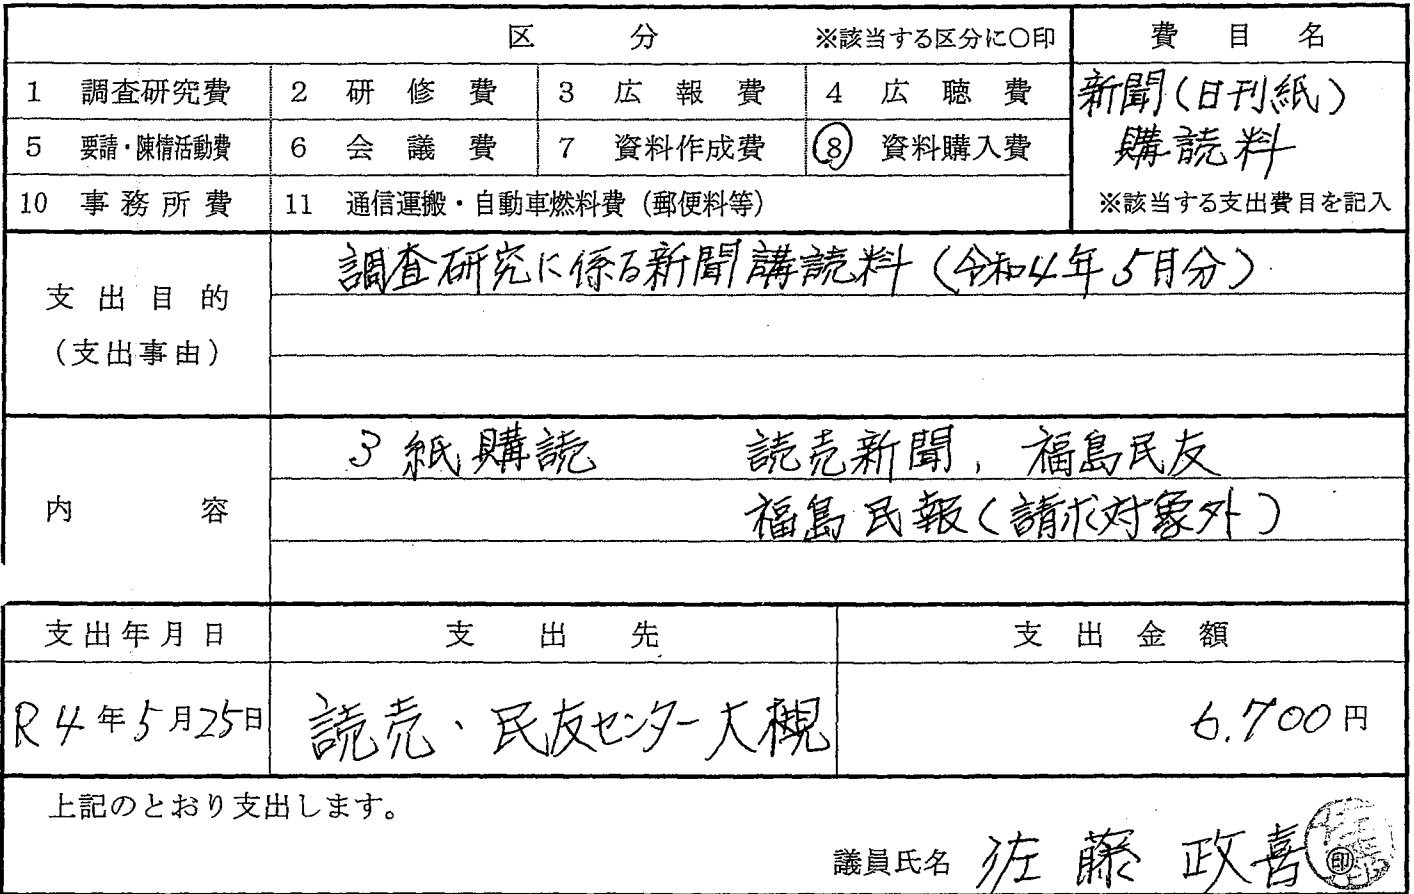 区分 ※該当する区分に○印 費目名
1 調査研究費 2 研修費 3 広報費 4 広聴費 新聞(日刊紙)
5 要請・陳情活動費 6 会議費 7 資料作成費 ⑧ 資料購入費 購読料
10 事務所費 11 通信運搬・自動車燃料費(郵便料等) ※該当する支出費目を記入
調査研究に係る新聞購読料(令和4年5月分)
支出目的
(支出事由)
3紙購読 読売新聞, 福島民友
内容 福島民報(請求対象外)
支出年月日 支出先 支出金額
R4年5月25日 読売・民友センター大槻 6.700円
上記のとおり支出します。
議員氏名 佐藤政喜 ㊞